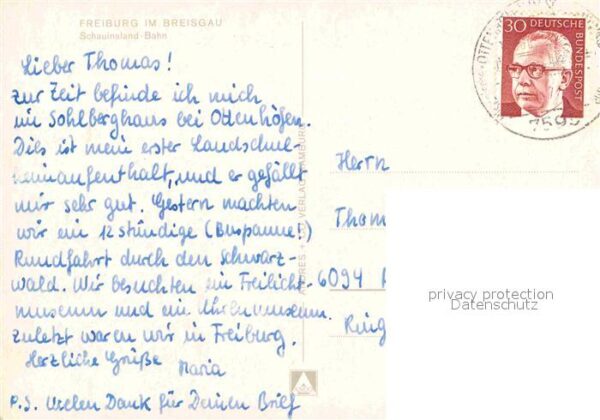 FREIBURG IM BREISGAU
Schauinsland-Bahn
Lieber Thomas!
zur Zeit befinde ich mich
im Sohlberghaus bei Ottenhöfen.
Dies ist mein erster Landschul-
heimaufenthalt, und er gefällt
mir sehr gut. Gestern machten
wir ein 12 stündige (Buspanne!)
Rundfahrt durch den Schwarz-
wald. Wir besuchten ein Freilicht-
museum und ein Uhrenmuseum.
zuletzt waren wir in Freiburg.
Herzliche Grüße
Maria
P.S. Vielen Dank für Deinen Brief
30 DEUTSCHE BUNDESPOST
OTTEN
759
Herrn
Thom
6094
Ring
VERLAG HAMBURG
privacy protection
Datenschutz